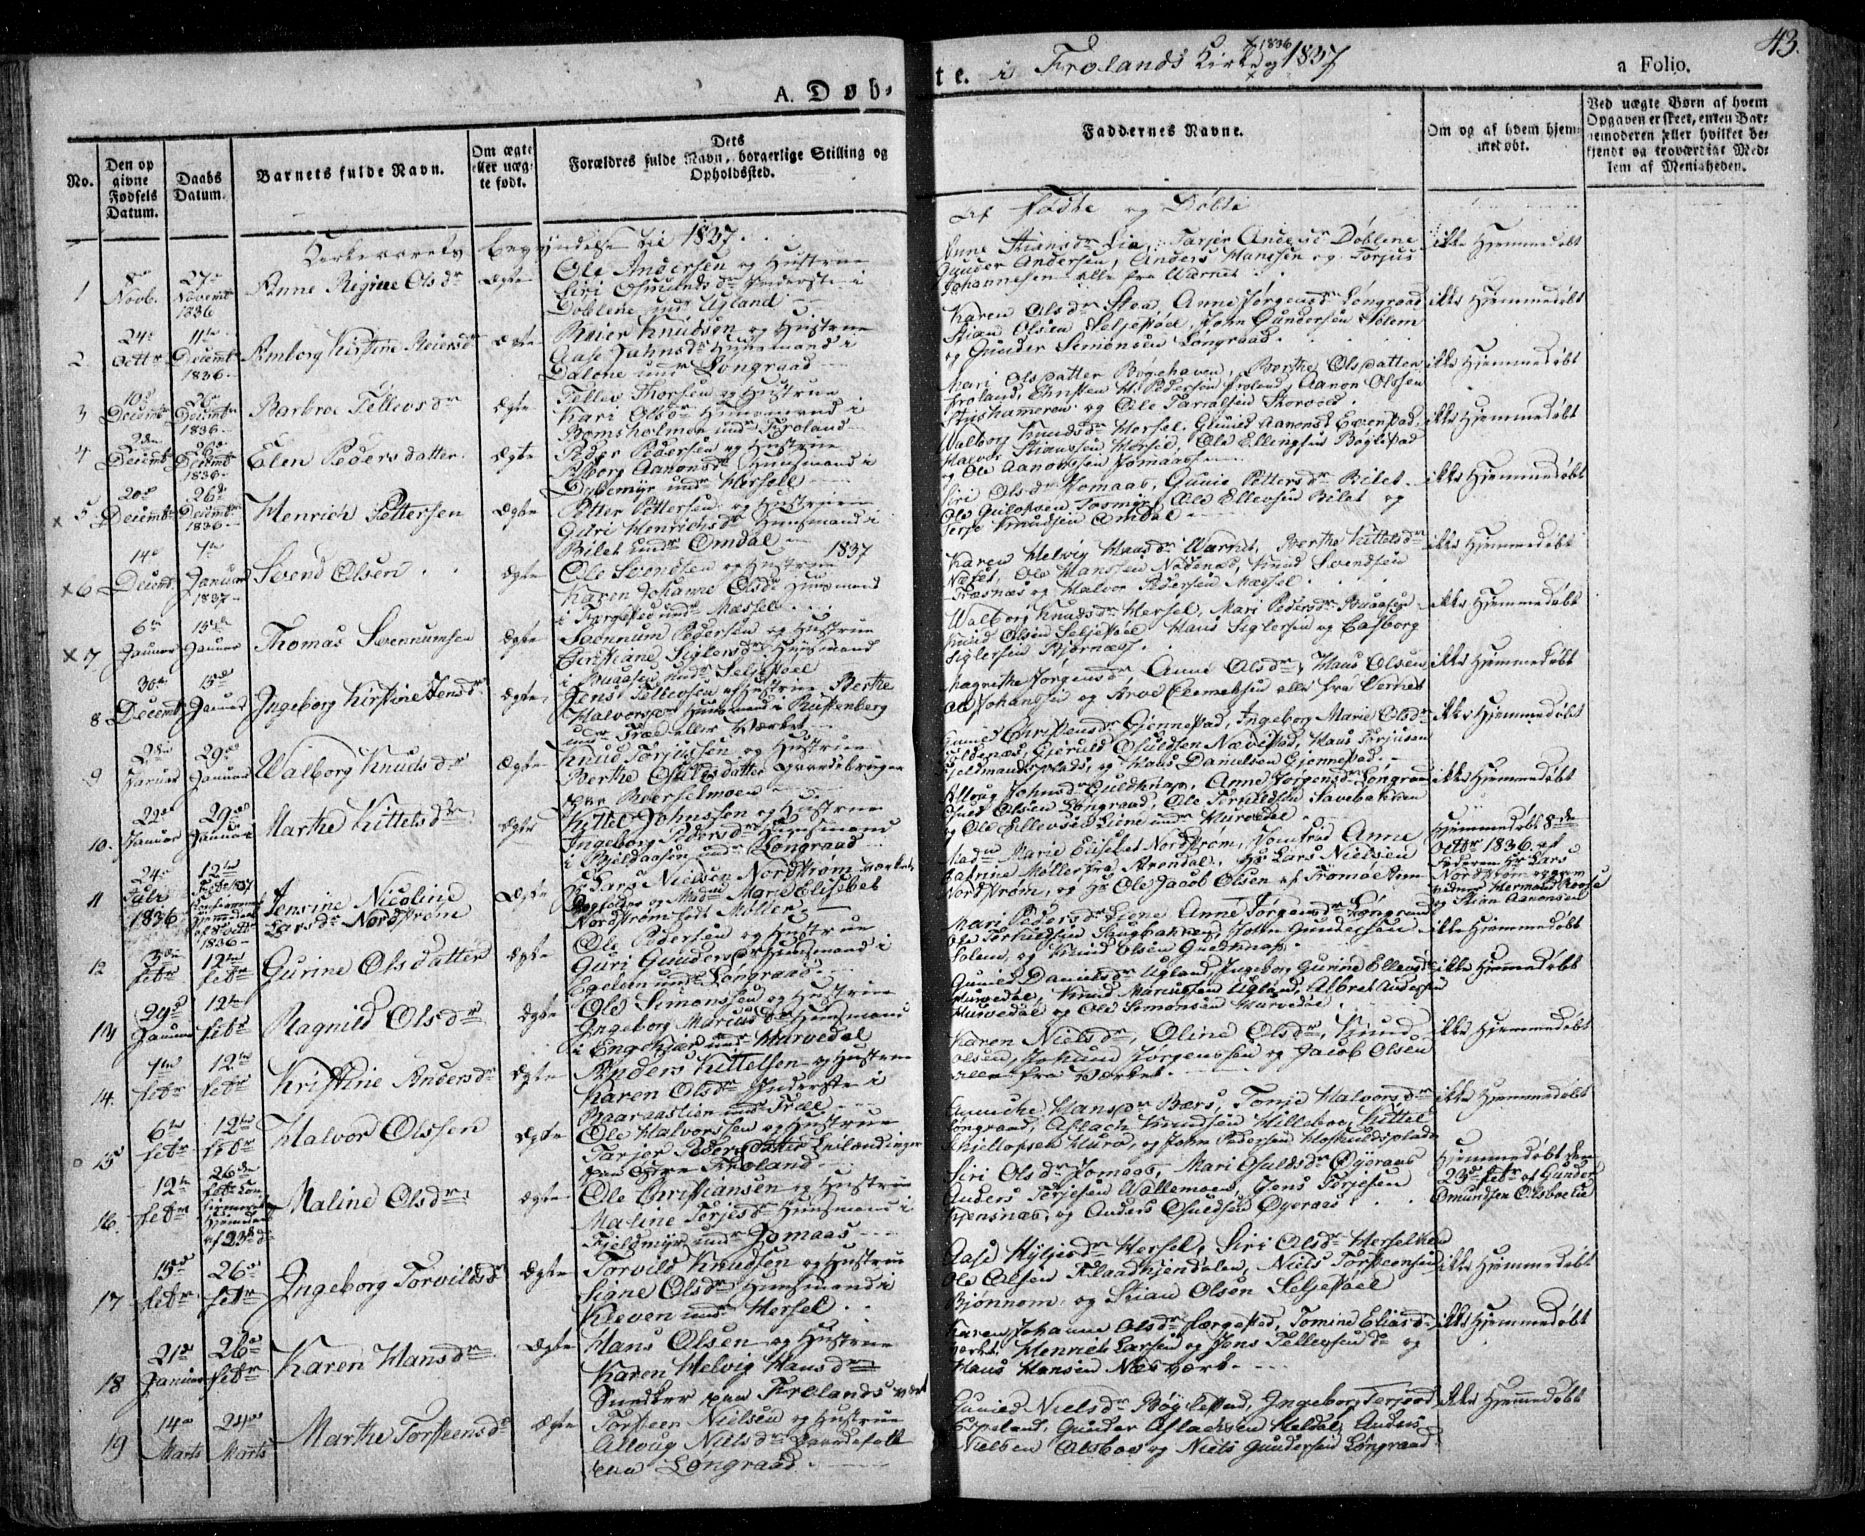 A. Døbte. i Frolands Kirke 1836 og 1837
43.
a Folio.
No.
Den op
givne
Fødsels
Datum.
Daabs
Datum.
Barnets fulde Navn.
Om ægte
eller uæg-
te født.
Dets
Forældres fulde Navn, borgerlige Stilling og
Opholdssted.
Faddernes Navne.
Om og af hvem hjem-
metdøbt.
Ved uægte Børn af hvem
Opgaven er skeet, enten Bar-
nemoderen eller hvilket be-
kjendt og troværdigt Med-
lem af Menigheden.
Kirkeaarets Begyndelse til 1837.
Af Fødte og Døbte
1
8de
Novb.
27de
Novembr
1836
Anne Regine Olsdr
Ægte
Ole Andersen og Hustrue
Siri Osmundsdr Inderste i
Doblene undr Ugland
Anne Stiansdr Lia, Tarjer Andersdr Doblene
Gunder Andersen, Anders Hanssen og Torjus
Johannesen alle fra Værket
ikke Hjemmedøbt
2
24de
Octbr
11te
Decembr
1836
Amborg Kirstine Reiersdr
Ægte
Reier Knudsen og Hustrue
Aase Jahnsdr Huusmand i
Dalene undr Longraad
Karen Olsdr Stea, Anne Jørgensdr Longraad
Stian Olsen Seljestøel, John Gundersen Solem
og Gunder Simonsen Longraad
ikke Hjemmedøbt
3
10de
Decembr
26de
Decembr
1836
Barbroe Tellevsdr
Ægte
Tellev Thorsen og Hustrue
Kari Olsdr Huusmand i
Bomsholmen undr Froland
Mari Olsdatter Bøgehaven, Berthe Olsdatter
Froland, Christen H. Pedersen Froland, Aanon Olssen
og Ole Tarralsen
ikke Hjemmedøbt
4
2den
Decembr
26de
Decembr
1836
Elen Pedersdatter
Ægte
Peder Pedersen og Hustrue
Asberg Aanonsdr Huusmand i
Dybemyr undr Hersell
Walborg Knudsdr Hersel, Gunild Aanonsdr Evenstad,
Halvor Stianssen Hersel, Ole Ellingsen Bøglestad
og Ole Aanonssen Jomaas
ikke Hjemmedøbt
x 5
20de
Decembr
26de
Decembr
1836
Henrich Pettersen
Ægte
Petter Pettersen og Hustrue
Guri Henrichsdr Huusmand i
Bilet undr Omdal
Siri Olsdr Jomaas, Gunie Pettersdr Bilet
Ole Ellevsen Bilet og
Terje Knudsen Omdal
ikke Hjemmedøbt
x 6
14de
Decembr
7de
Januar
1837
Svend Olsen
Ægte
1837
Ole Svendsen og Hustrue
Karen Johanne Olsdr Huusmand
i Færgested undr Mæssel
Karen Helvig Hansdr Værket, Berthe Kittelsdr
Næset, Ole Hanssen Nødenæs, Knud Svendsen
Træsnæs og Halvor Pedersen Mæssel
ikke Hjemmedøbt
x 7
6te
Januar
15de
Januar
Thomas Svennumsen
Ægte
Svennum Pedersen og Hustrue
Christiane Siglersdr Huusmand
i Braaasen undr Seljestøel
Walborg Knudsdr Hersel, Mari Pedersdr Braaasen
Knud Olsen Seljestøel, Hans Siglersen og Casborg
Siglersen Bjørnæs
ikke Hjemmedøbt
8
30te
Decembr
15de
Januar
Ingeborg Kirstine Jensdr
Ægte
Jens Tellevsen og Hustrue Berthe
Halvorsdr Huusmand i Rustenberg
undr Træe eller Værket
Magrethe Jørgensdr, Anne Olsdr, Hans Olsen
Ole Johansen og Arve Clemetsen alle fra Værket
ikke Hjemmedøbt
9
28de
Januar
29de
Januar
Walborg Knudsdr
Ægte
Knud Torjussen og Hustrue
Berthe Osuldsdatter Gaardebruger
paa Bøerselmoen
Gunild Christensdr Gjennestad, Ingeborg Marie Olsdr
Gjeruld Osuldsen Nævestad, Hans Torjusen
Fjeldmandsplads, og Hans Danielsen Gjennestad
ikke Hjemmedøbt
10.
22de
Januar
29de
Januar
Marthe Kittelsdr
Ægte
Kittel Johnssen og Hustrue
Ingeborg Pedersdr Huusmand
i Bjeldaasen undr Longraad
Alloug Johnsdr Guldknap, Anne Jørgensdr Longraad
Olsen Longraad, Ole Torkildsen Savebakken
og Ole Ellevsen Liene undr Hurvedal
ikke Hjemmedøbt
11
24de
Juli
1836
12te
Febr 1837
Confirmeret
Hjemmedøbt
af 8de Octbr
1836
Jensine Nicoline
Larsdr Nordstrøm
Ægte
Hr Lars Nielsen Nordstrøm Værkets
Fogfolder og Madm Marie Elisabet
Nordstrøm født Møller
Madm Marie Elisabet Nordstrøm, Jomfrue Anne
Catrine Møller fra Arendal, Hr Lars Nielsen
Nordstrøm, og Hr Ole Jacob Olsen af Tromøe
Hjemmedøbt 8de
Octbr 1836 af
Faderen Hr Lars
Nordstrøm
vidner Hermand
og Stian Aanonsen
12
3die
Febr
12te
Febr
Gurine Olsdatter
Ægte
Ole Pedersen og Hustrue
Guri Gundersdr Huusmand i
Egelien undr Longraad
Mari Pedersdr Liene, Anne Jørgensdr Longraad
Ole Torkildsen Saugbakken, John Gundersen
Solem, og Knud Olsen Guldknap
ikke Hjemmedøbt
13
29de
Januar
12te
Febr
Ragnild Olsdr
Ægte
Ole Simonssen og Hustrue
Ingeborg Mariusdr Huusmand
i Engekjær undr Hurvedal
Gunild Danielsdr Ugland, Ingeborg Gurine Ellevsdr
Hurvedal, Knud Mariussen Ugland, Albret Andersen
Hurvedal og Ole Simonsen Hurvedal
ikke Hjemmedøbt
14.
7de
Febr
12te
Febr
Kristine Andersdr
Ægte
Anders Kittelsen og Hustrue
Karen Olsdr Inderste i
Baaraaslien undr Træe
Karen Nielsdr, Oline Olsdr, Knud
Olsen, Johand Jørgenssen og Jacob Olsen
alle fra Værket
ikke Hjemmedøbt
15
6te
Febr
12te
Febr
Halvor Olssen
Ægte
Ole Halvorssen og Hustrue
Tarjer Pedersdatter Leilændinger
paa Øvre Froland
Hansdr Bærs, Tonje Halvorsdr
Longraad, Aslach Knudsen Hilleboe, Kittel
Kjellofsen Hurv, og John Pedersen Hoskuldsplads
ikke Hjemmedøbt
16.
12te
Febr
26de
Febr Con-
firmeret
Hjemmedøbt
af 23de
Maline Olsdr
Ægte
Ole Christiansen og Hustrue
Maline Torjesdr Huusmand i
Fieldmyr undr Jomaas
Siri Olsdr Jomaas, Mari Osuldsdr Øyeraas
Anders Torjesen Wallemoen, Jens Torjesen
Kjensnæs, og Anders Osuldsen Øyeraas
Hjemmedøbt den
23de Febr af Gunder
Omundsen Olsboelie
17
15de
Febr
26de
Febr
Ingeborg Torvildsdr
Ægte
Torvild Knudsen og Hustrue
Signe Olsdr Huusmand i
Kleven undr Hersel
Aase Kyljesdr Hersel, Siri Olsdr Herselkleven
Ole Olsen Flaadkjendalen, Niels Torsteensen
Bjønnom, og Stian Olsen Seljestøel
ikke Hjemmedøbt
18
21de
Januar
26de
Febr
Karen Hansdr
Ægte
Hans Olsen og Hustrue
Karen Helvig Hansdr
Snedker paa Frolands Værk
Karen Johanne Olsdr Færgested, Tomine Eliasdr
Værket, Henrich Larsen og Jens Tellevsen do og
Hans Hansen Næs Værk
ikke Hjemmedøbt
19
14de
Marts
24de
Marts
Marthe Torsteensdr
Ægte
Torsteen Nielsen og Hustrue
Alloug Nielsdr Gaardefolk
paa Longraad
Gunild Nielsdr Bøglestad, Ingeborg Terjesdr
Espeland, Gunder Aslachsen Heldal, Anders
Nielsen Olsboe og Niels Gundersen Longraad
ikke Hjemmedøbt